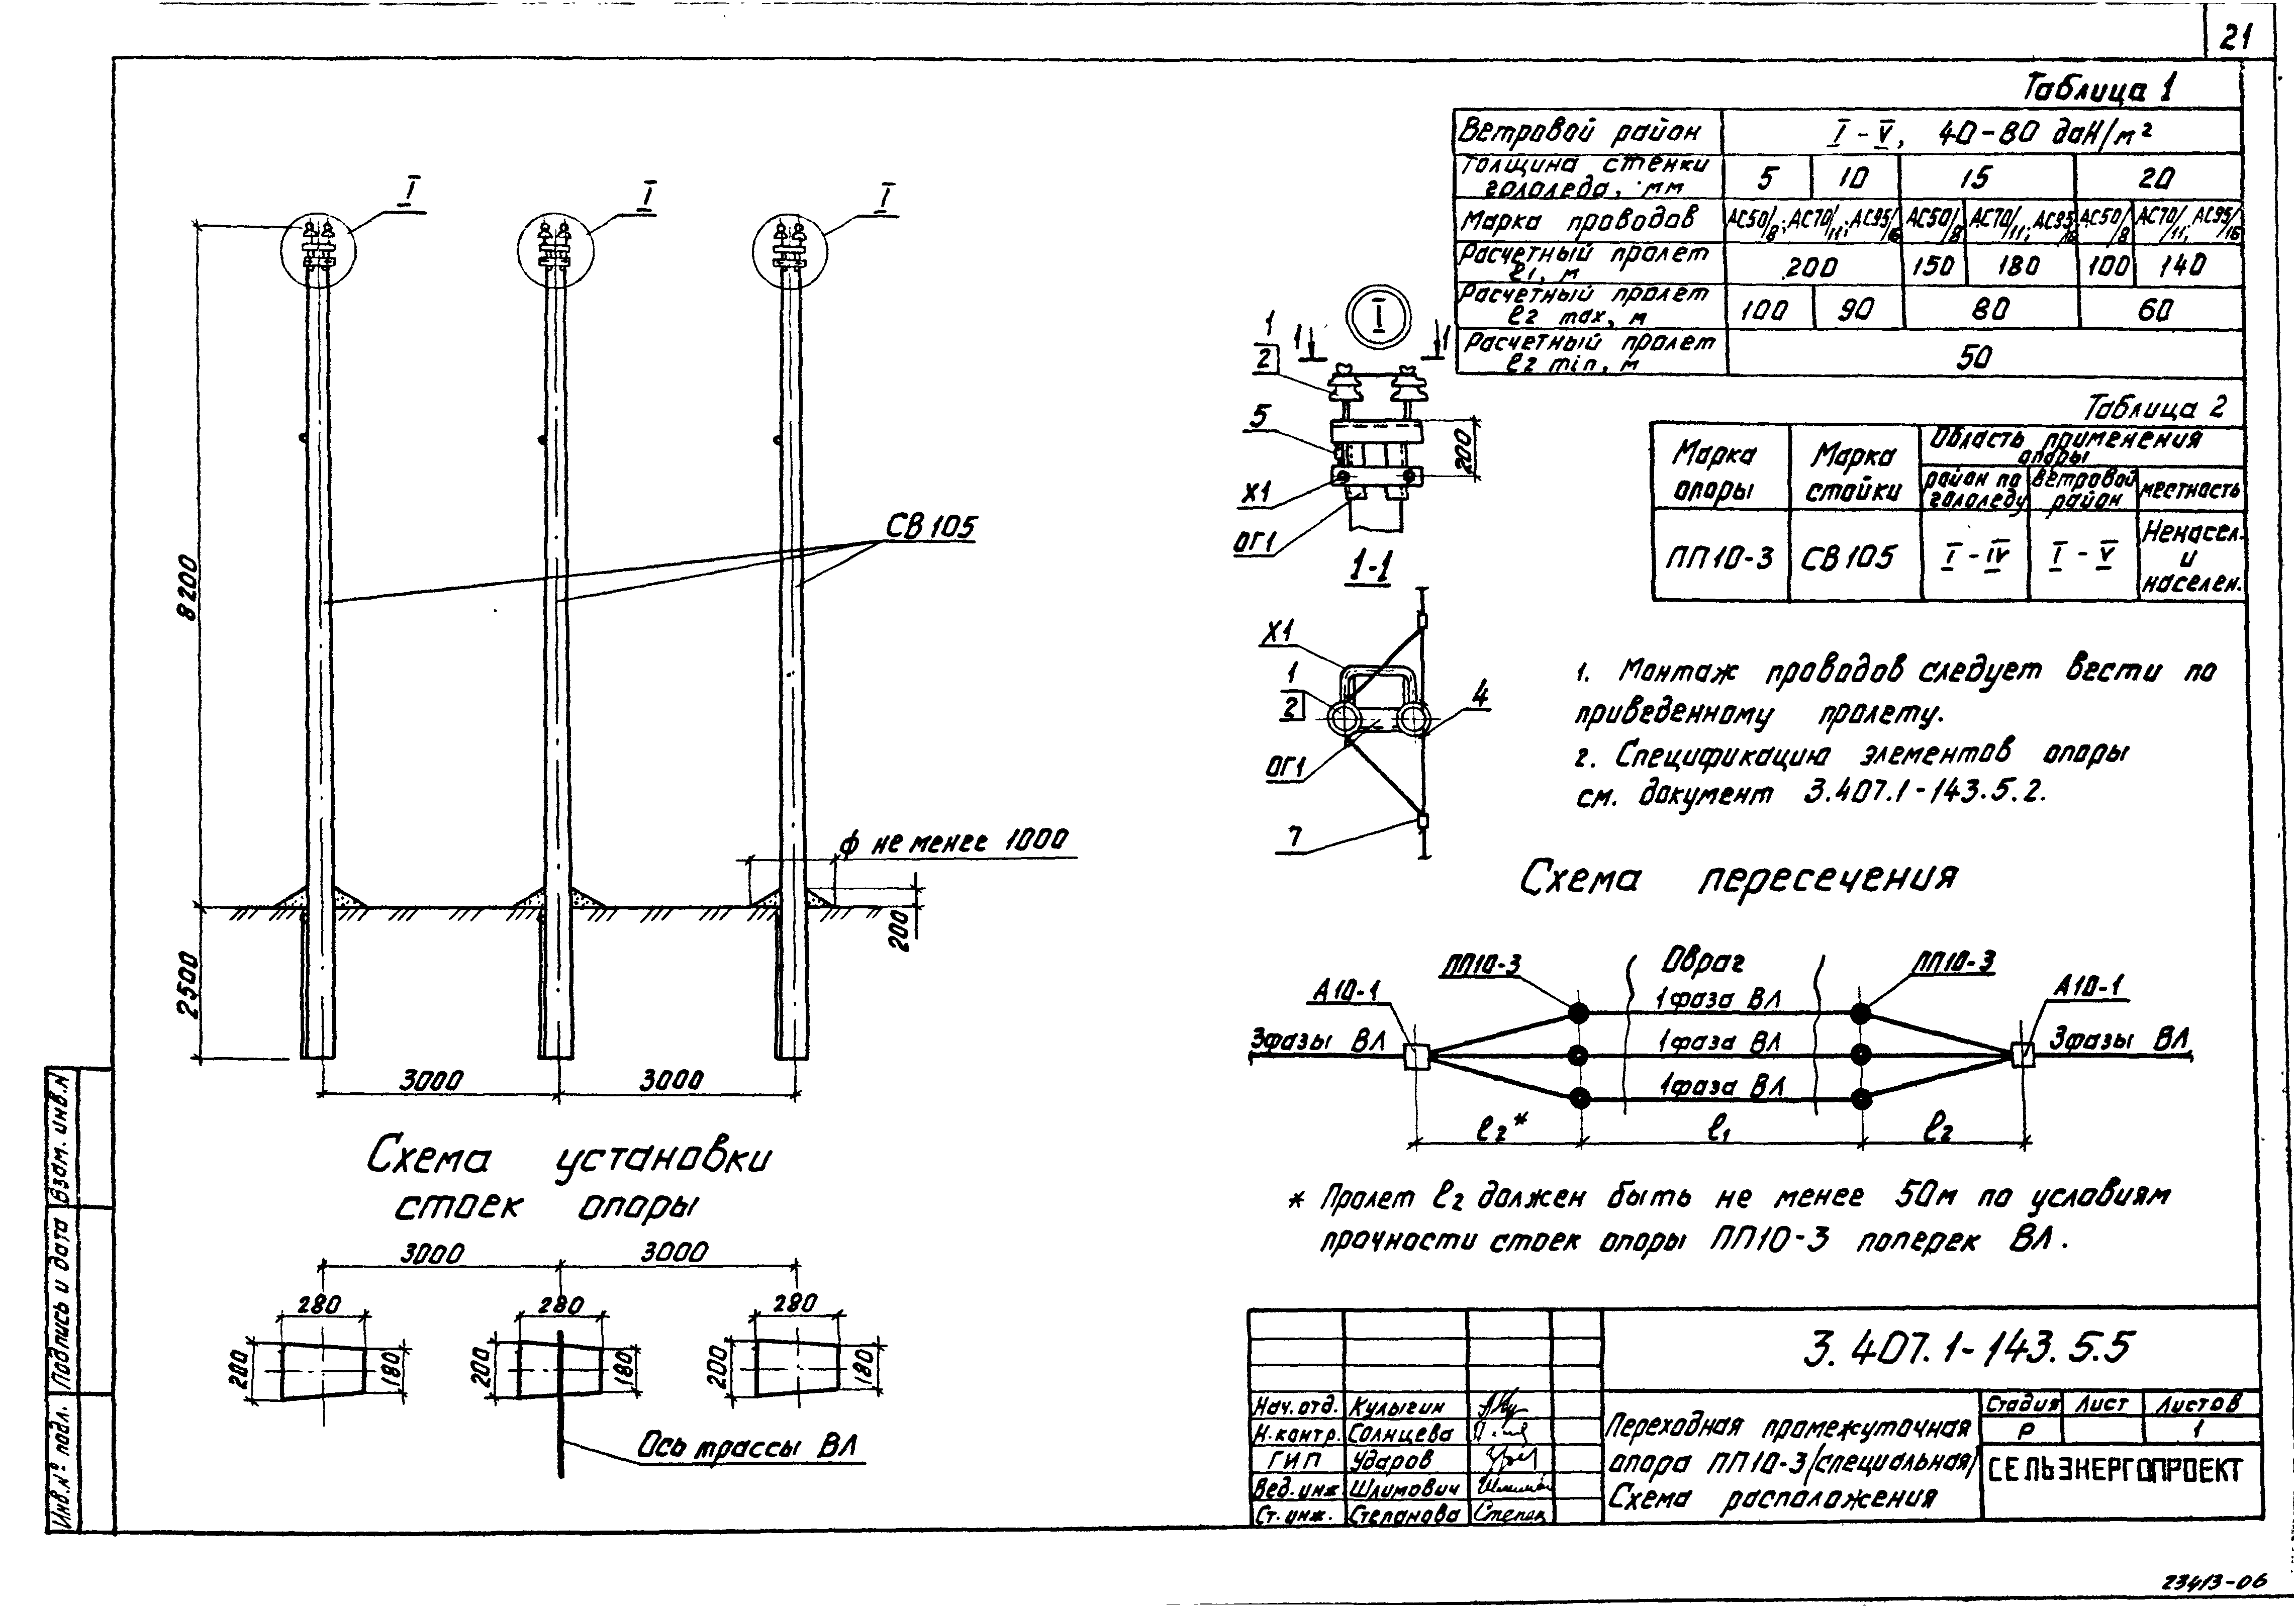 21
Таблица 1
Ветровой район I - V, 40-80 даН/м²
Толщина стенки гололеда, мм 5 10 15 20
Марка проводов АС50/8; АС70/11; АС95/16 АС50/8 АС70/11; АС95/16 АС50/8 АС70/11; АС95/16
Расчетный пролет l1, м 200 150 180 100 140
Расчетный пролет l2 max, м 100 90 80 60
Расчетный пролет l2 min, м 50
Таблица 2
Марка опоры
Марка стойки
Область применения опоры
район по гололеду
ветровой район
местность
ПП10-3 СВ105 I - IV I - V Ненасел. и населен.
I
I
I
8200
2500
СВ105
ф не менее 1000
200
3000
3000
I
1
2
1
1
5
200
Х1
ОГ1
1-1
Х1
1
2
4
ОГ1
7
1. Монтаж проводов следует вести по
приведенному пролету.
2. Спецификацию элементов опоры
см. документ 3.407.1-143.5.2.
Схема пересечения
ПП10-3
Овраг
ПП10-3
А10-1
1 фаза ВЛ
А10-1
3фазы ВЛ
1 фаза ВЛ
3фазы ВЛ
1 фаза ВЛ
l2*
l1
l2
* Пролет l2 должен быть не менее 50м по условиям
прочности стоек опоры ПП10-3 поперек ВЛ.
Схема установки
стоек опоры
3000
3000
280
280
280
200
180
200
180
200
180
Ось трассы ВЛ
Взам. инв.N
Подпись и дата
Инв.№ подл.
3.407.1-143.5.5
Нач.отд. Кулыгин
Н.контр. Солнцева
ГИП Ударов
Вед.инж Шлимович
Ст.инж. Степанова
Переходная промежуточная
опора ПП10-3/специальная/
Схема расположения
Стадия Лист Листов
Р 1
СЕЛЬЭНЕРГОПРОЕКТ
23413-06